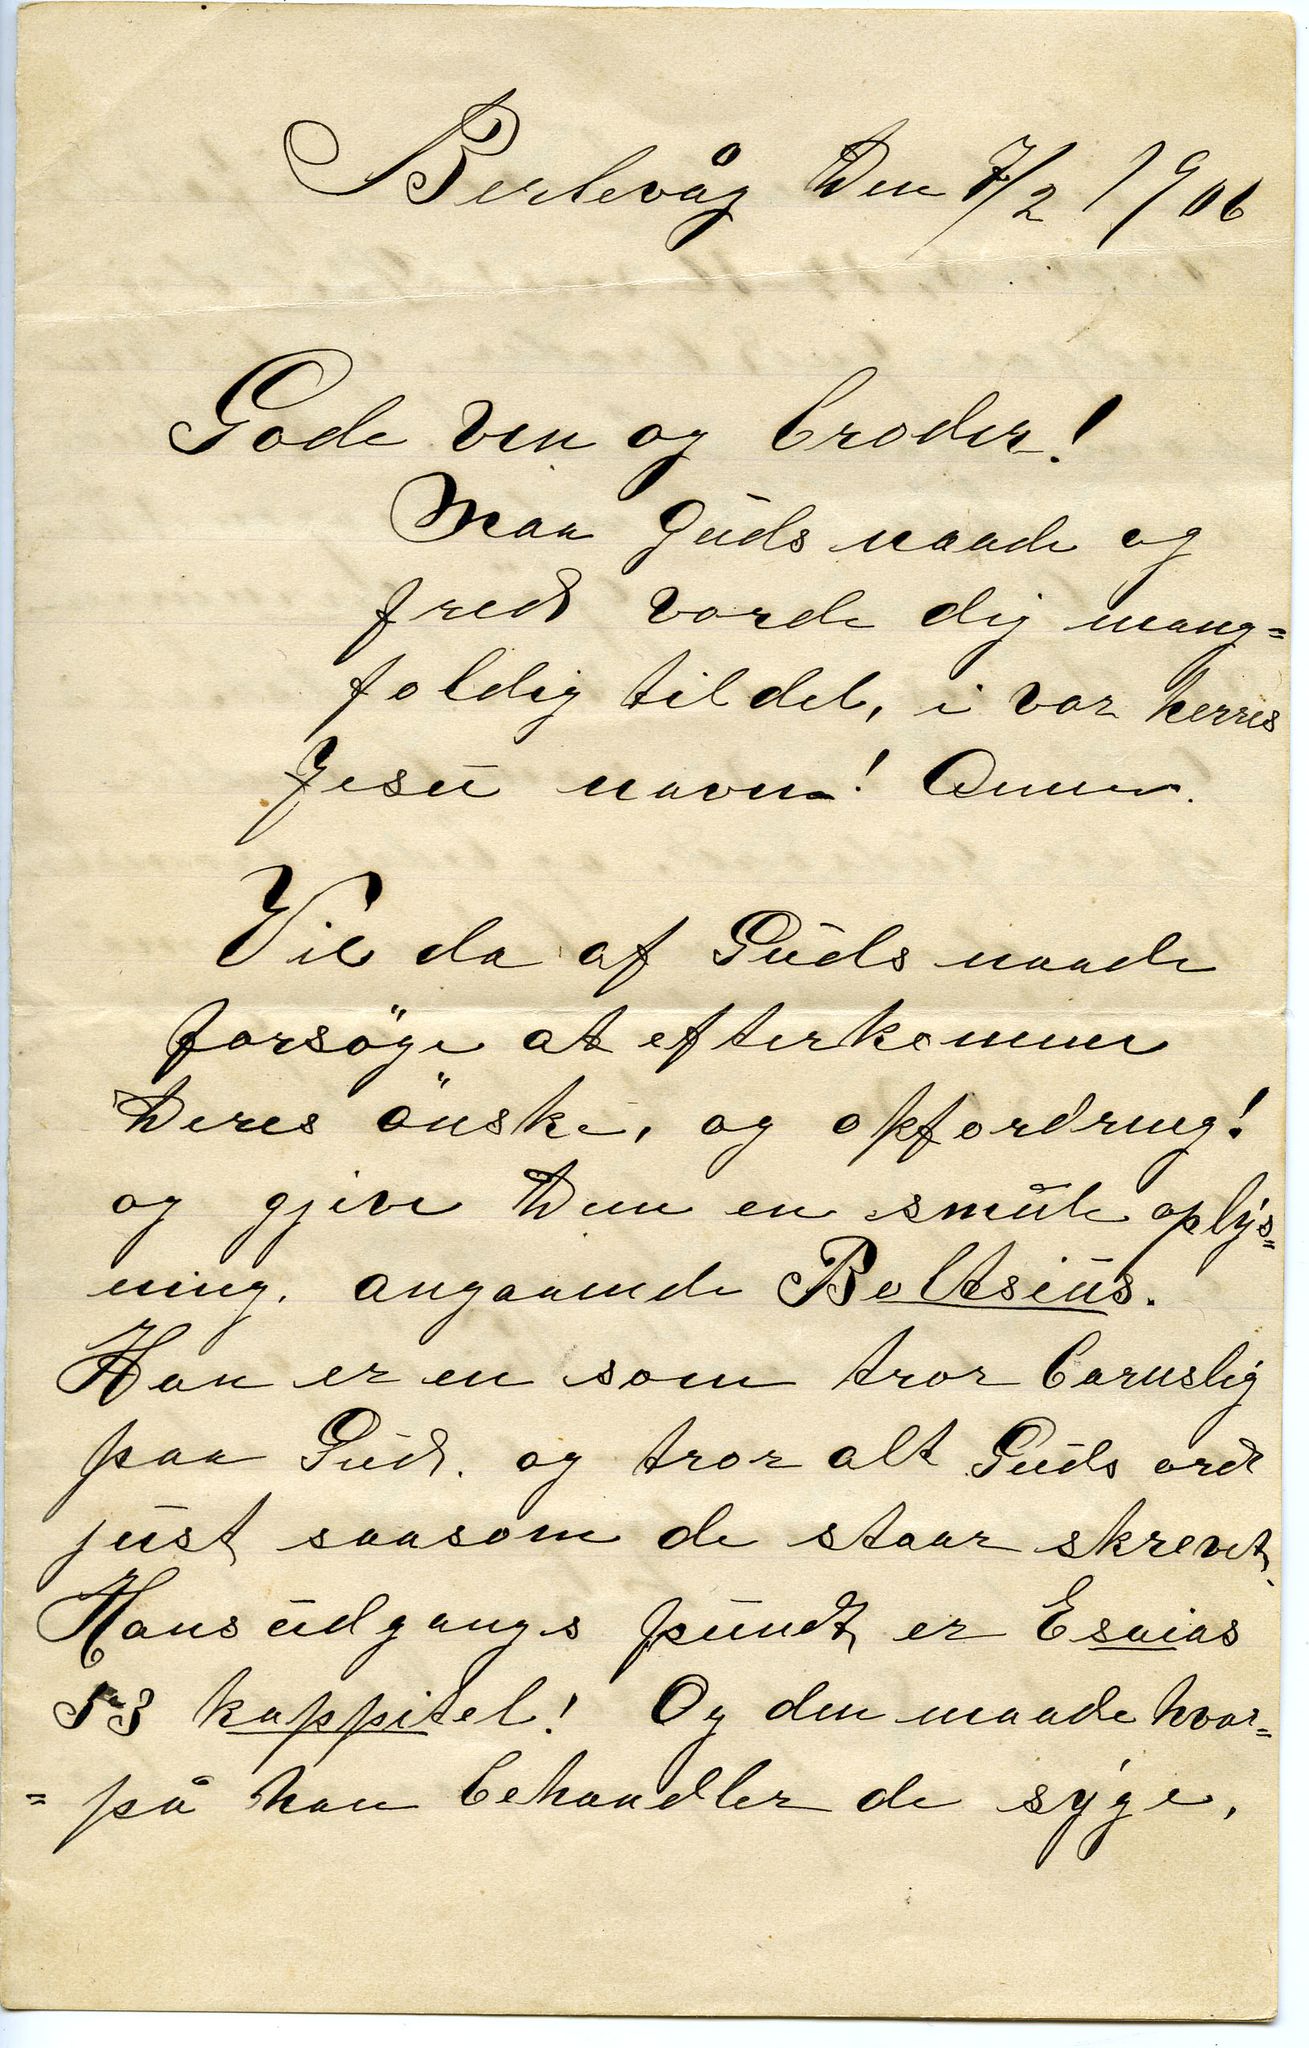 Berlevåg Den 7/2 1906
Gode ven og broder!
Maa Guds naade og
fred vorde dig mang=
foldig tildel, i vor herres
Jesu navn! Amen.
Vil da af Guds naade
forsöge at efterkomme
Deres önske, og opfordring!
og gjive Dem en smule oplys=
ning. angaaende Boltsius.
Han er en som tror barnslig
paa Gud. og tror alt Guds ord
just saasom de staar skrevet.
Hans udgangs pundt er Esaias
53 kappitel! Og den maade hvor=
=på han behandler de syge,